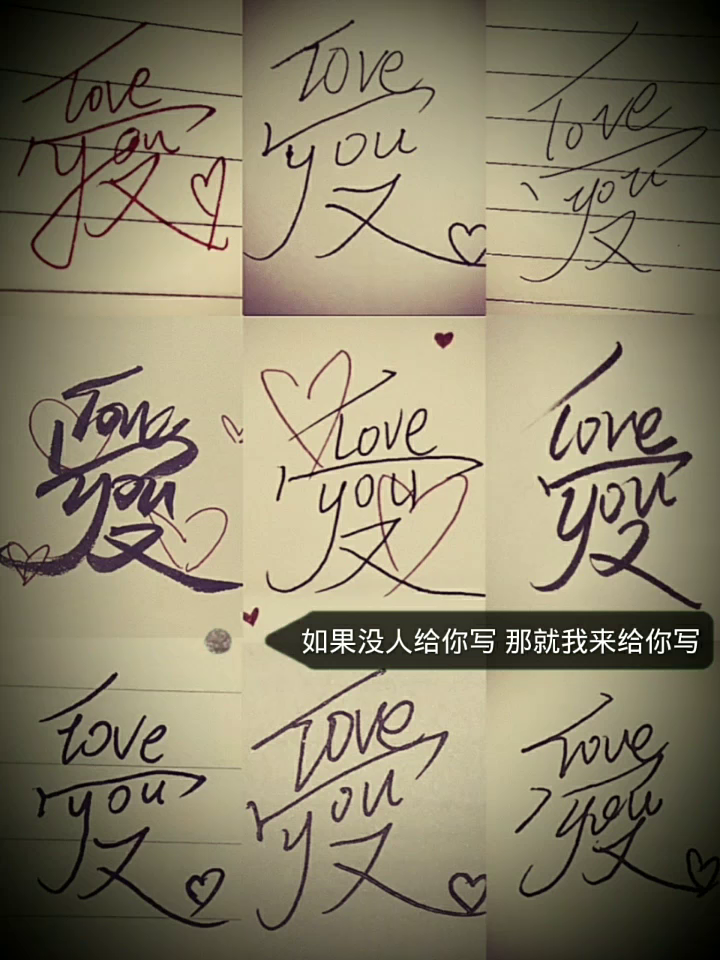 love
you
又
love
you
又
love
you
又
love
you
又
love
you
又
love
you
又
如果没人给你写 那就我来给你写
love
you
又
love
you
又
love
you
又